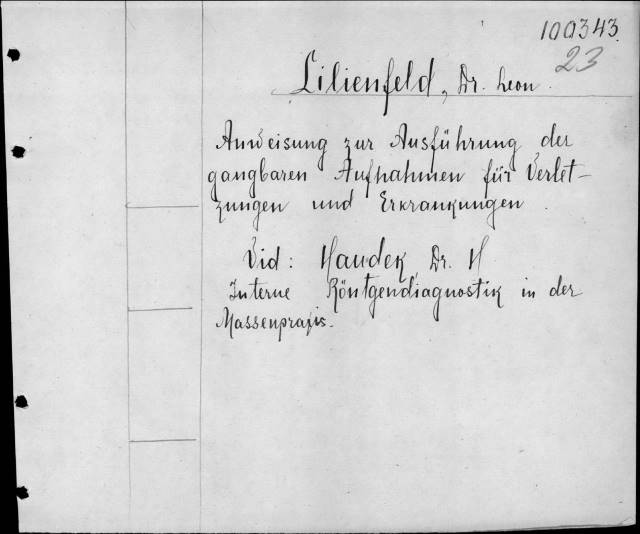 100343.
23
Lilienfeld, Dr. Leon.
Anweisung zur Ausführung der
gangbaren Aufnahmen für Verlet-
zungen und Erkrankungen
Vid: Haudek, Dr. H
Interne Röntgendiagnostik in der
Massenpraxis.